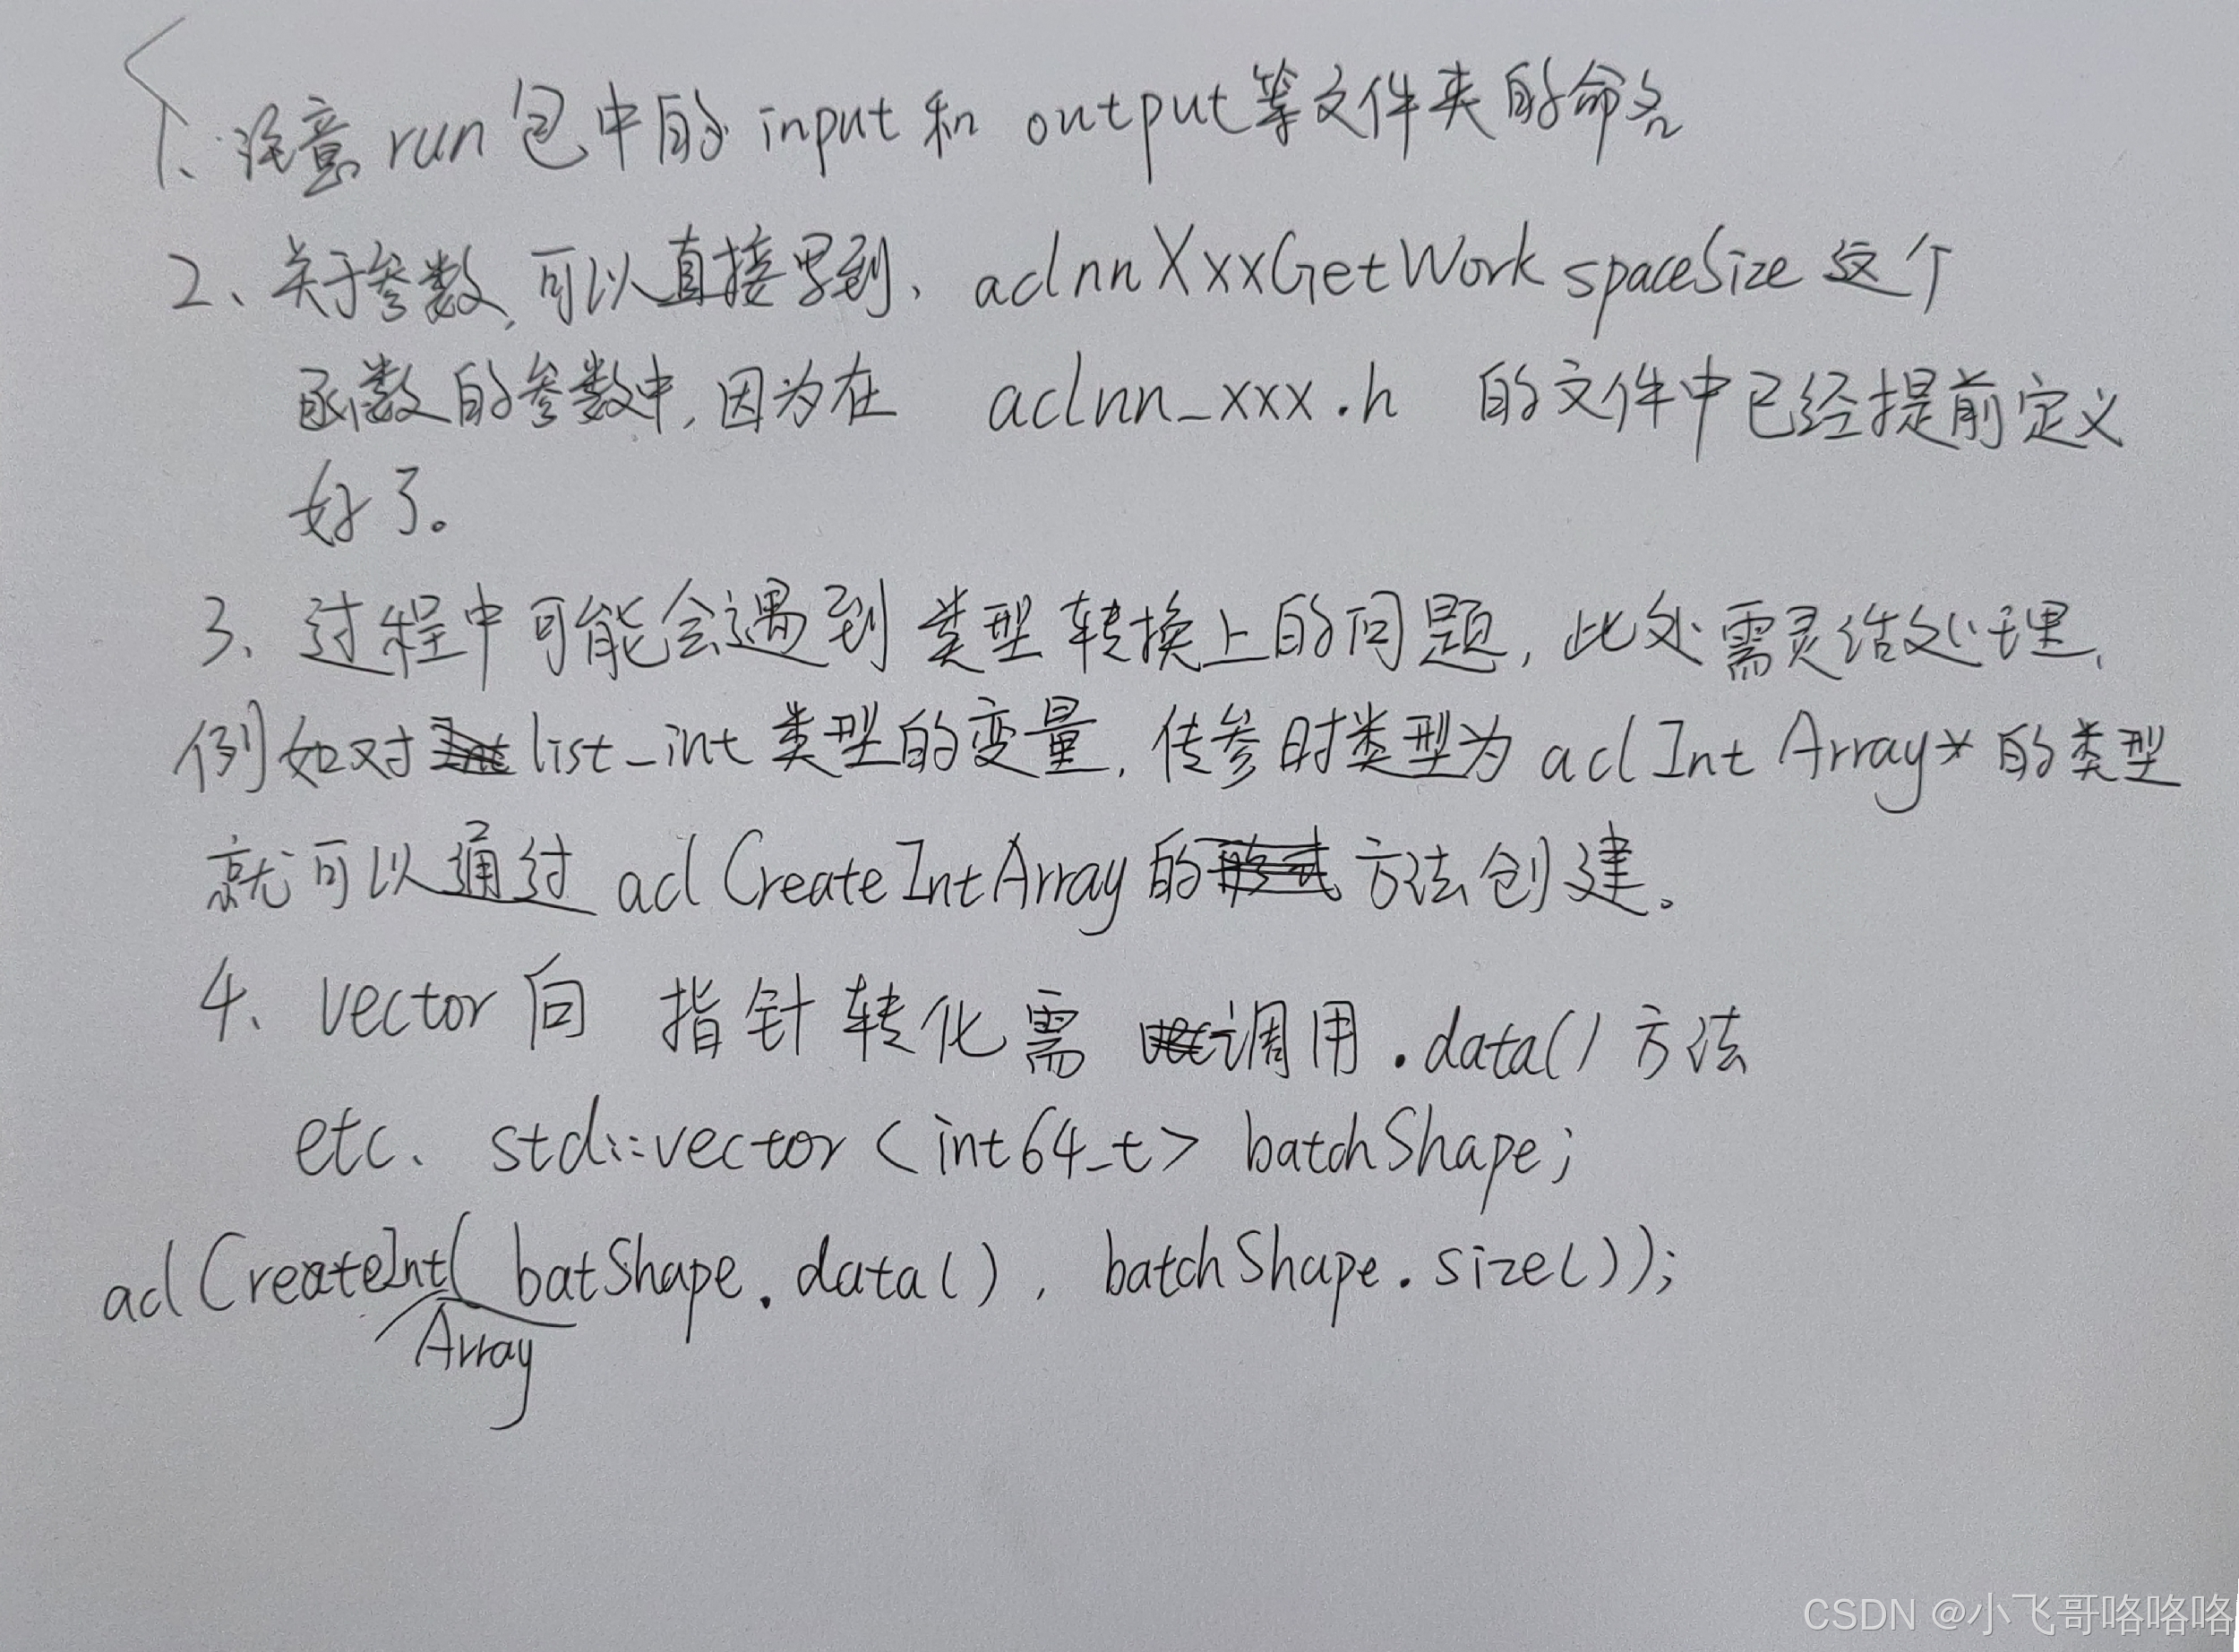 1、注意run包中的input和output等文件夹的命名
2、关于参数,可以直接写到、aclnnXxxGetWorkspaceSize这个
函数的参数中,因为在 aclnn_xxx.h 的文件中已经提前定义
好了。
3、过程中可能会遇到类型转换上的问题,此处需灵活处理、
例如对list_int类型的变量,传参时类型为aclIntArray*的类型
就可以通过aclCreateIntArray的方法创建。
4、vector向 指针转化需 调用.data()方法
etc、std::vector<int64_t> batchShape;
aclCreateInt( batShape.data(), batchShape.size());
Array
CSDN @小飞哥咯咯咯